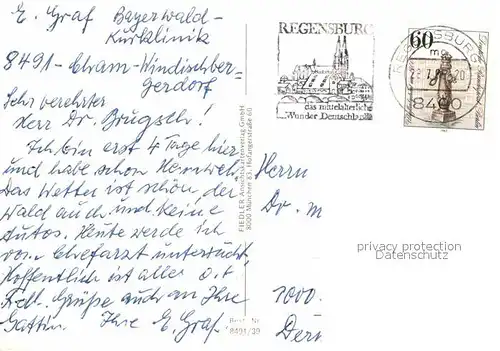 E. Graf Bayerwald-
Kurklinik
8491-Cham-Windischber-
gerdorf
Sehr verehrter
Herr Dr. Brugsch!
Ich bin erst 4 Tage hier
und habe schon Heimweh.
Das Wetter ist schön, der
Wald auch und keine
Autos. Heute werde ich
vom Chefarzt untersucht,
Hoffentlich ist alles o.k
Frdl. Grüße auch an Ihre
Gattin. Ihre E. Graf
FIEDLER Ansichtskartenverlag GmbH
8000 München 83
Best. Nr.
8491/39
REGENSBURG
das mittelalterliche
Wunder Deutschlands
REGENSBURG
8400
60
Herrn
Dr. m
1000
privacy protection
Datenschutz